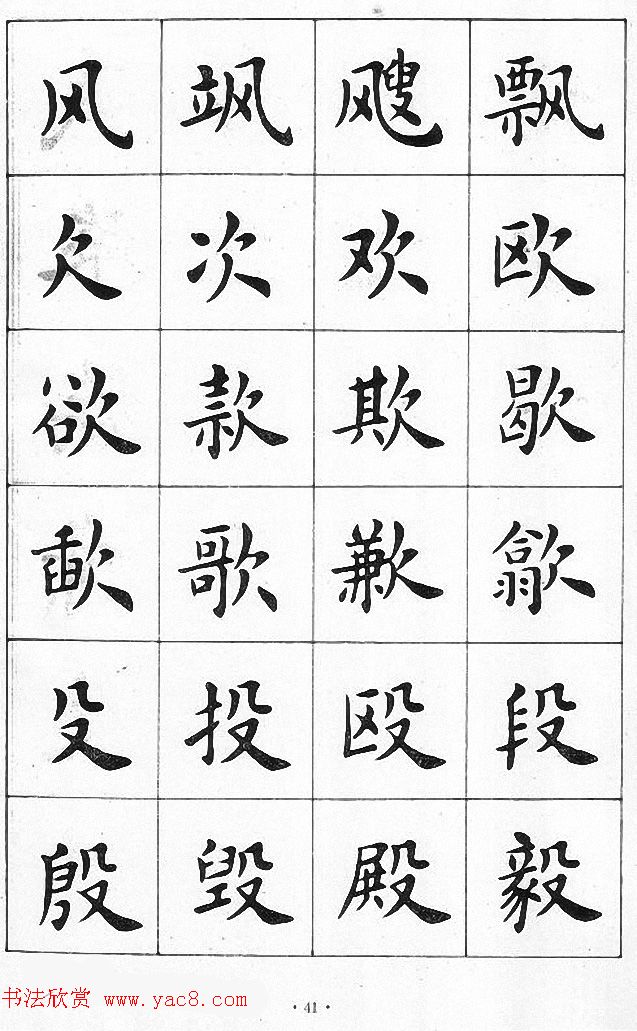 风 飒 飕 飘
欠 次 欢 欧
欲 款 欺 歇
歃 歌 歉 歙
殳 投 殴 段
殷 毁 殿 毅
书法欣赏 www.yac8.com
· 41 ·